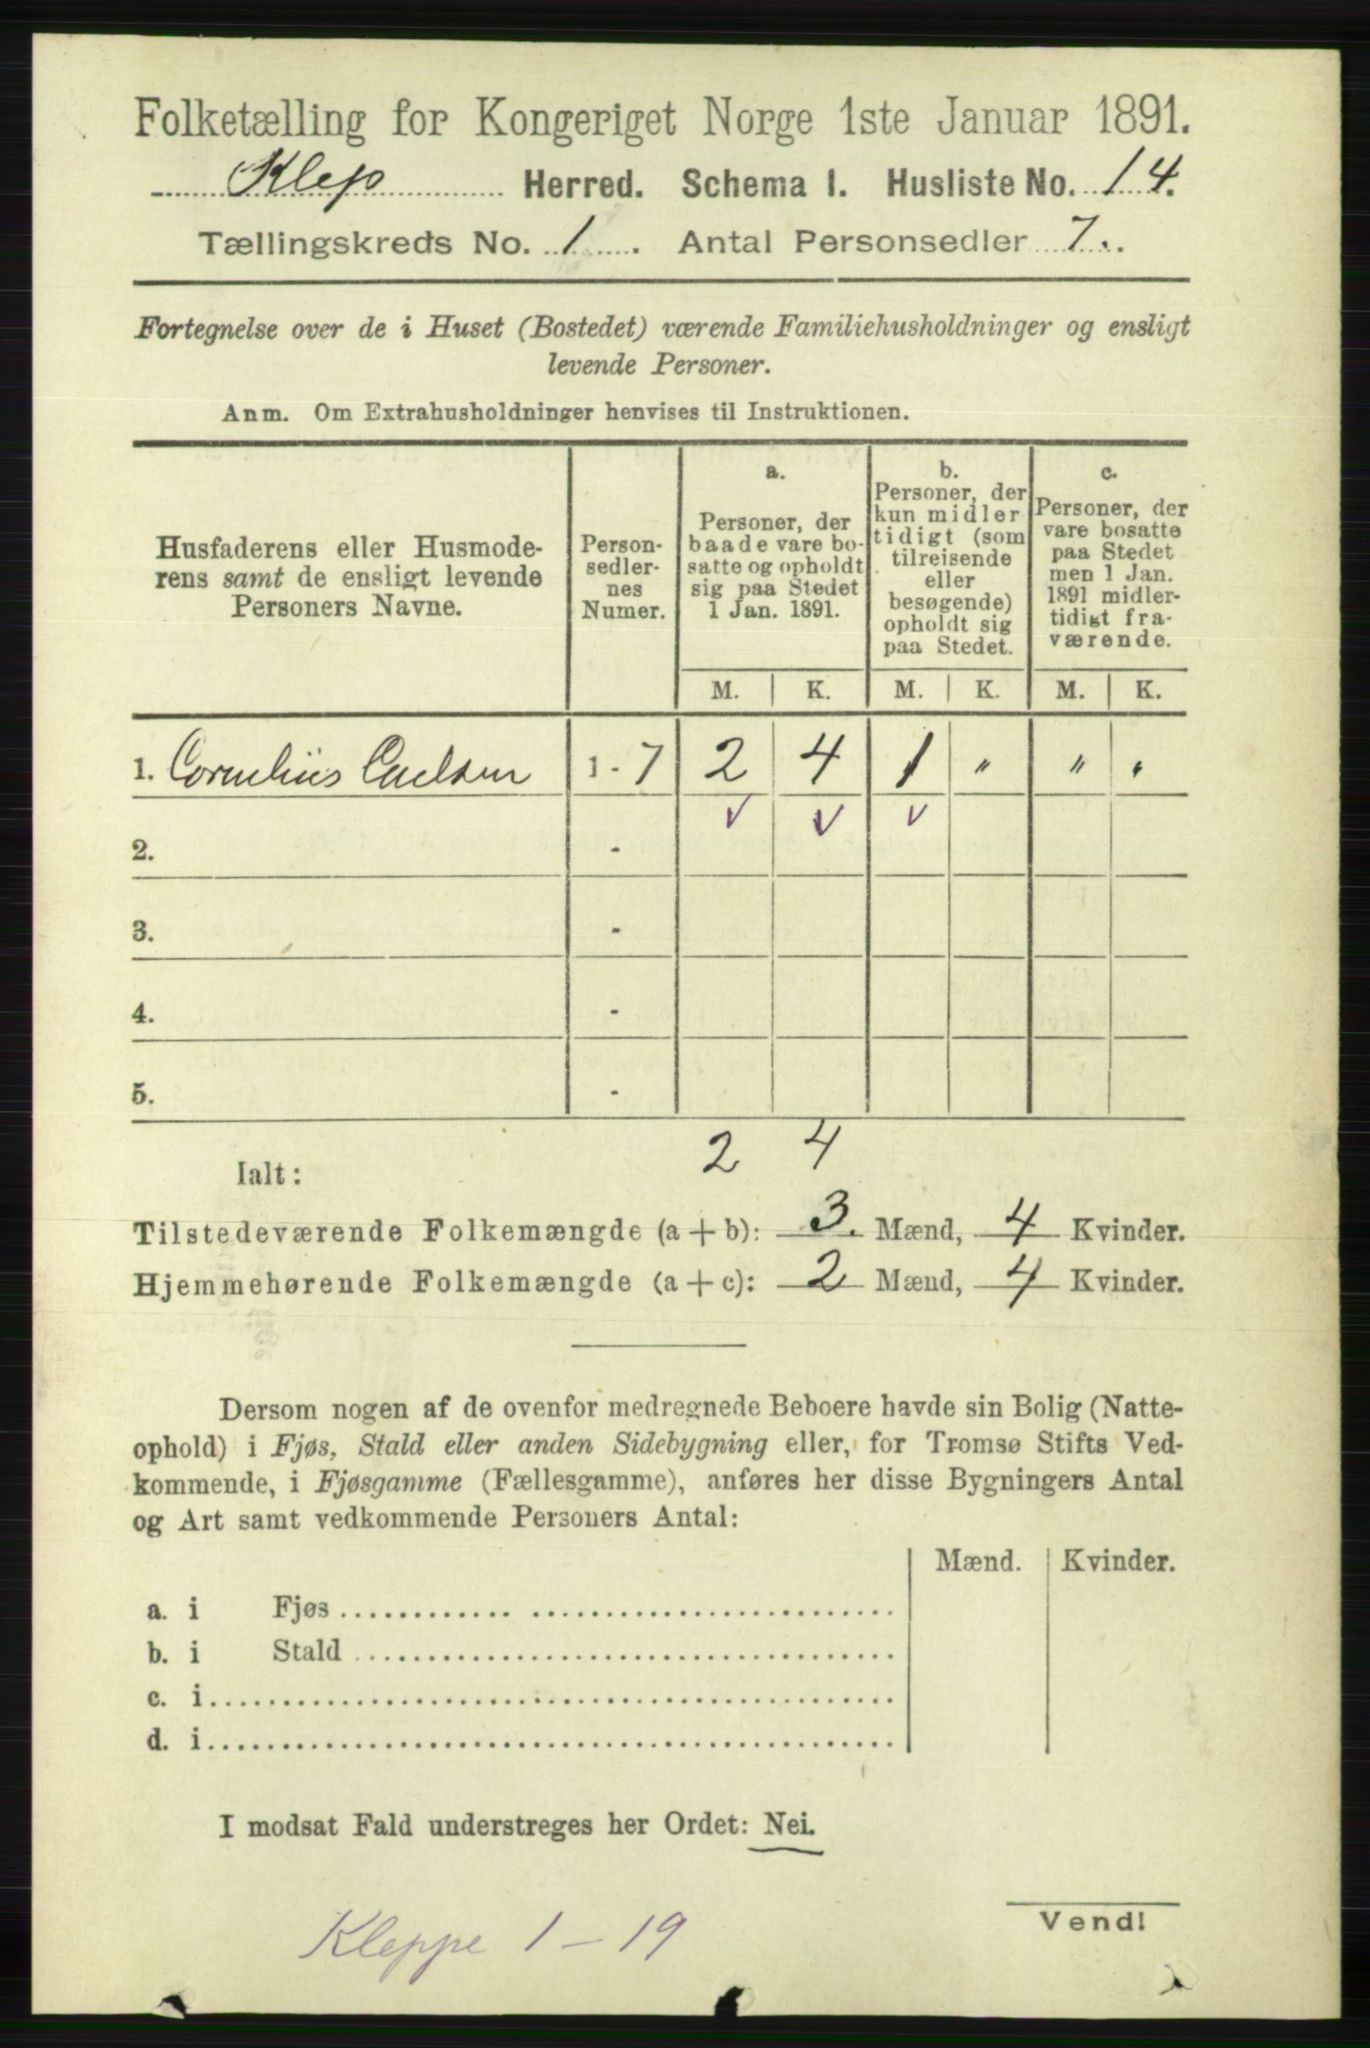 Folketælling for Kongeriget Norge 1ste Januar 1891.
Klep Herred. Schema I. Husliste No. 14.
Tællingskreds No. 1. Antal Personsedler 7.
Fortegnelse over de i Huset (Bostedet) værende Familiehusholdninger og ensligt
levende Personer.
Anm. Om Extrahusholdninger henvises til Instruktionen.
Husfaderens eller Husmode-
rens samt de ensligt levende
Personers Navne.
Person-
sedler-
nes
Numer.
a.
Personer, der
baade vare bo-
satte og opholdt
sig paa Stedet
1 Jan. 1891.
b.
Personer, der
kun midler
tidigt (som
tilreisende
eller
besøgende)
opholdt sig
paa Stedet.
c.
Personer, der
vare bosatte
paa Stedet
men 1 Jan.
1891 midler-
tidigt fra-
værende.
M. K. M. K. M. K.
1. Cornelius 1 - 7 2 4 1 " " "
2. -
3. -
4. -
5. -
2 4
Ialt:
Tilstedeværende Folkemængde (a + b): 3. Mænd, 4 Kvinder.
Hjemmehørende Folkemængde (a + c): 2 Mænd, 4 Kvinder.
Dersom nogen af de ovenfor medregnede Beboere havde sin Bolig (Natte-
ophold) i Fjøs, Stald eller anden Sidebygning eller, for Tromsø Stifts Ved-
kommende, i Fjøsgamme (Fællesgamme), anføres her disse Bygningers Antal
og Art samt vedkommende Personers Antal:
Mænd. Kvinder.
a. i Fjøs
b. i Stald
c. i
d. i
I modsat Fald understreges her Ordet: Nei.
Vend!
Kleppe 1 - 19